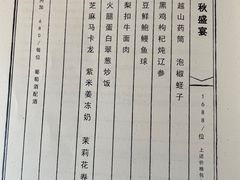 秋盛宴
1688/位
上述价格包
越山药筒 泡椒蛏子
黑鸡枸杞炖辽参
豆鲜鲍鳗鱼球
梨扣牛面肉
火腿蛋白翠葱炒饭
芝麻马卡龙 紫米姜冻奶 茉莉花卷
加 680/每位 葡萄酒配酒